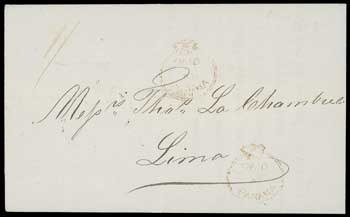 Messrs. Thos. La Chambre
Lima
PANAMA